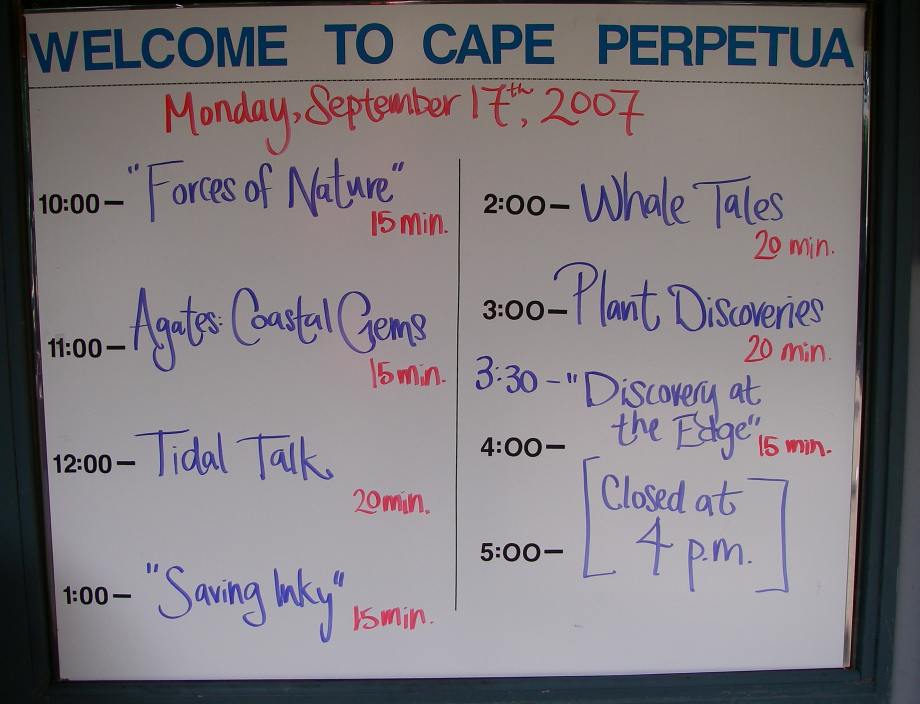 WELCOME TO CAPE PERPETUA
Monday, September 17th, 2007
10:00– "Forces of Nature"
15 min.
11:00– Agates: Coastal Gems
15 min.
12:00– Tidal Talk
20 min.
1:00– "Saving Inky"
15 min.
2:00– Whale Tales
20 min.
3:00– Plant Discoveries
20 min.
3:30 – "Discovery at
the Edge"
15 min.
4:00–
[Closed at
4 p.m.]
5:00–